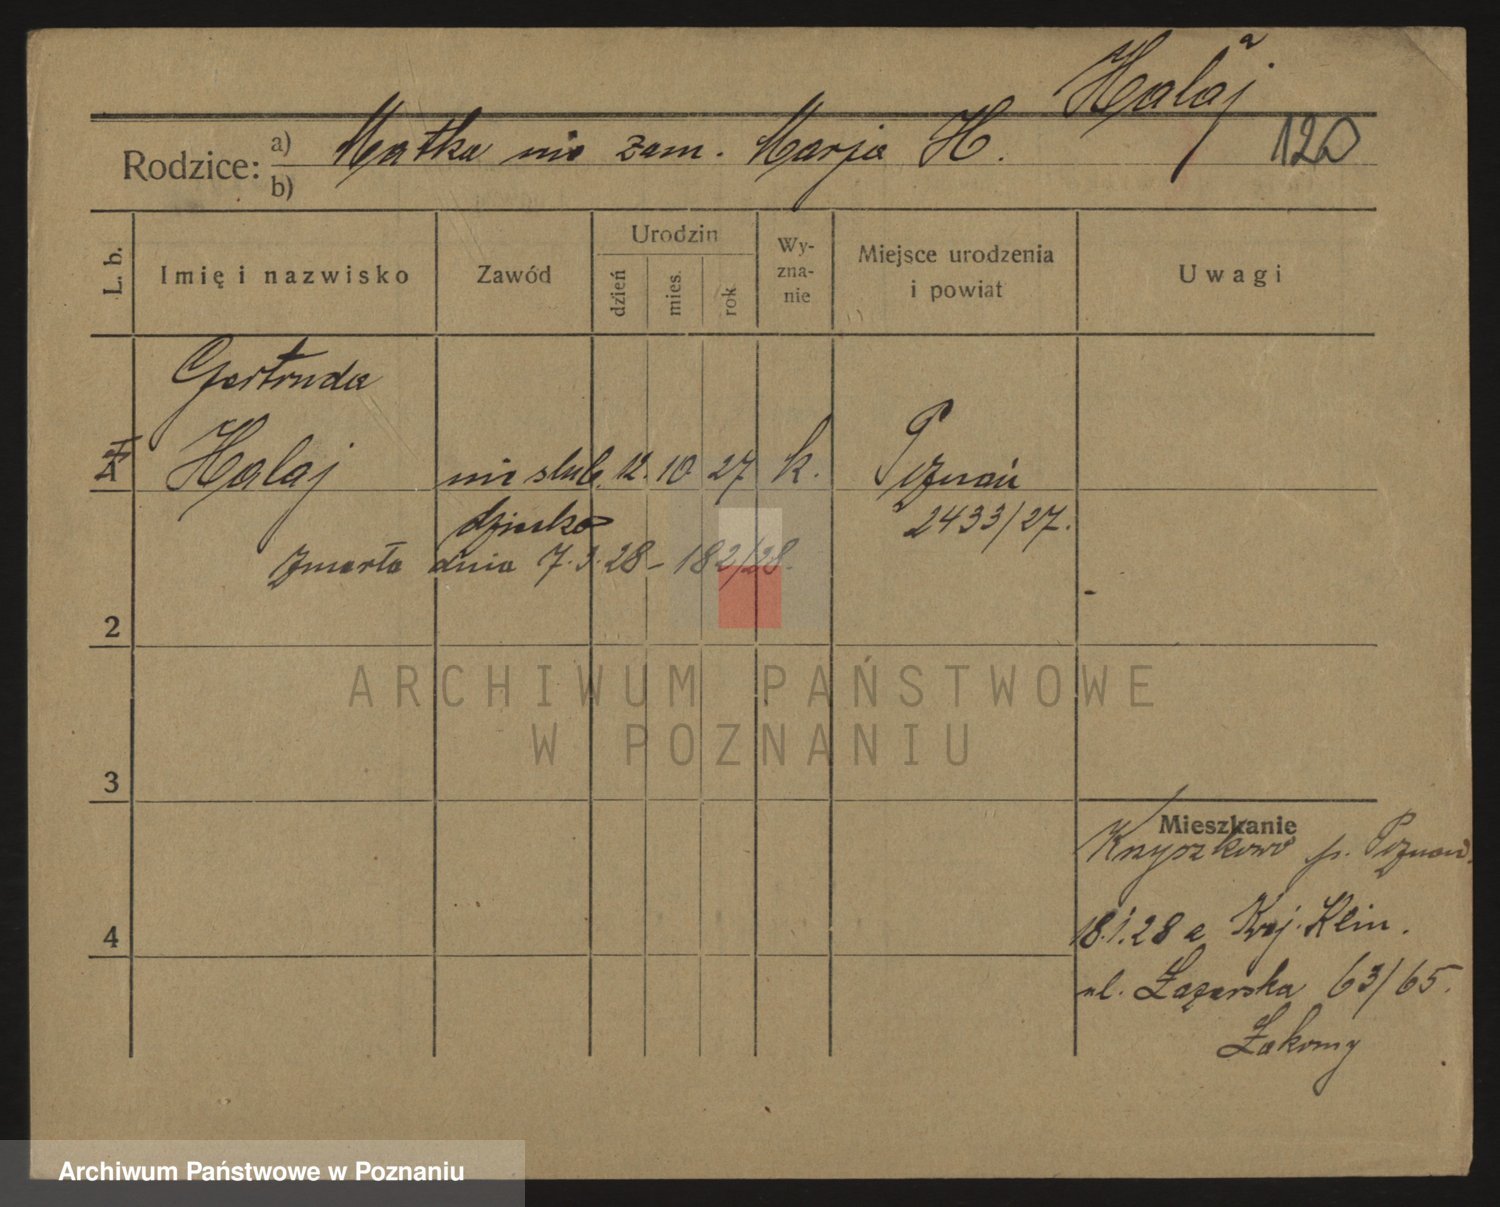 Halaj
Rodzice: a) Matka nie zam. Marja H. 120
b)
L. b. Imię i nazwisko Zawód Urodzin dzień mies. rok Wy-zna-nie Miejsce urodzenia i powiat Uwagi
Gertruda
Halaj nie ślub. 12. 10 27 k. Poznań
dziecko 2433/27.
zmarła dnia 7.3.28 – 182/28.
2
ARCHIWUM PAŃSTWOWE
W POZNANIU
3
Mieszkanie
Krzyszkowo p. Poznań.
4
18.1.28 a Kraj. Klin.
ul. Łazarska 63/65.
Łakomy
Archiwum Państwowe w Poznaniu